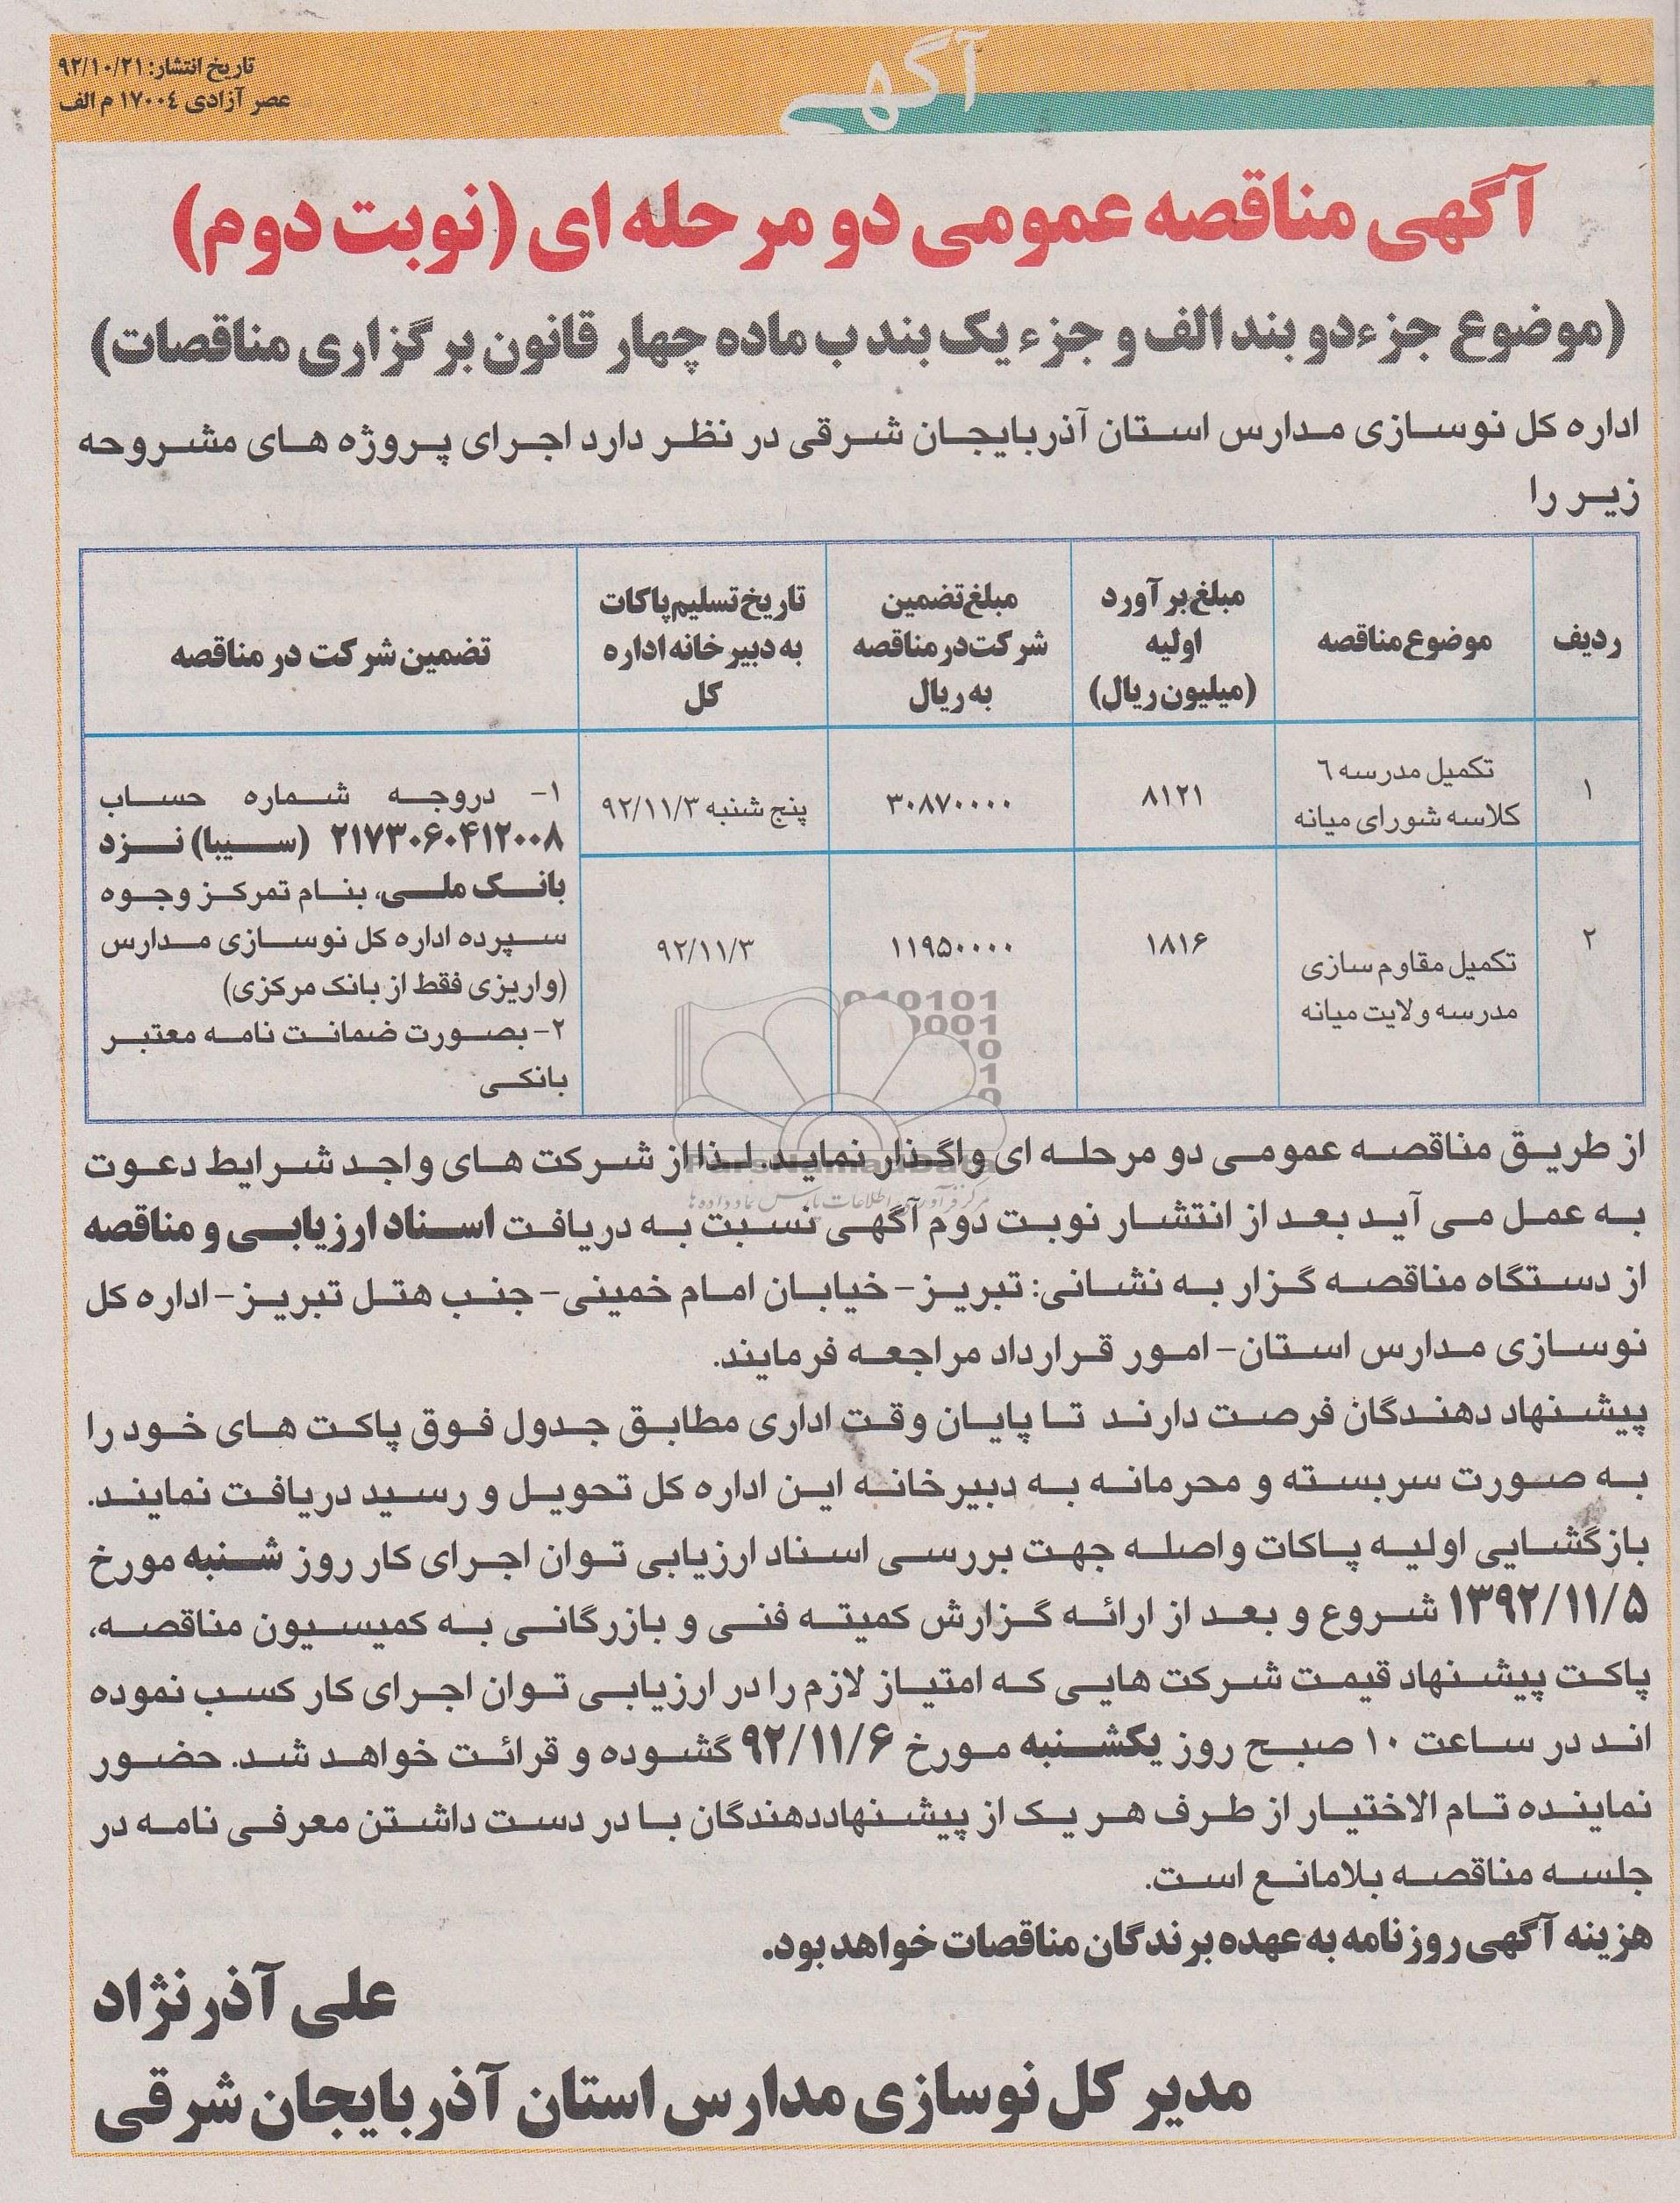 آگهی
تاریخ انتشار: ۹۲/۱۰/۲۱
عصر آزادی ۱۷۰۰۴ م الف
آگهی مناقصه عمومی دو مرحله ای (نوبت دوم)
(موضوع جزء دو بند الف و جزء یک بند ب ماده چهار قانون برگزاری مناقصات)
اداره کل نوسازی مدارس استان آذربایجان شرقی در نظر دارد اجرای پروژه های مشروحه
زیر را
ردیف
موضوع مناقصه
مبلغ برآورد
اولیه
(میلیون ریال)
مبلغ تضمین
شرکت در مناقصه
به ریال
تاریخ تسلیم پاکات
به دبیرخانه اداره
کل
تضمین شرکت در مناقصه
۱
تکمیل مدرسه ٦
کلاسه شورای میانه
۸۱۲۱
۳۰۸۷۰۰۰۰
پنج شنبه ۹۲/۱۱/۳
۲
تکمیل مقاوم سازی
مدرسه ولایت میانه
۱۸۱۶
۱۱۹۵۰۰۰۰
۹۲/۱۱/۳
۱- دروجه شماره حساب
۲۱۷۳۰۶۰۴۱۲۰۰۸ (سیبا) نزد
بانک ملی، بنام تمرکز وجوه
سپرده اداره کل نوسازی مدارس
(واریزی فقط از بانک مرکزی)
۲- بصورت ضمانت نامه معتبر
بانکی
از طریق مناقصه عمومی دو مرحله ای واگذار نماید. لذا از شرکت های واجد شرایط دعوت
به عمل می آید بعد از انتشار نوبت دوم آگهی نسبت به دریافت اسناد ارزیابی و مناقصه
از دستگاه مناقصه گزار به نشانی: تبریز- خیابان امام خمینی- جنب هتل تبریز- اداره کل
نوسازی مدارس استان- امور قرارداد مراجعه فرمایند.
پیشنهاد دهندگان فرصت دارند تا پایان وقت اداری مطابق جدول فوق پاکت های خود را
به صورت سربسته و محرمانه به دبیرخانه این اداره کل تحویل و رسید دریافت نمایند.
بازگشایی اولیه پاکات واصله جهت بررسی اسناد ارزیابی توان اجرای کار روز شنبه مورخ
۱۳۹۲/۱۱/۵ شروع و بعد از ارائه گزارش کمیته فنی و بازرگانی به کمیسیون مناقصه،
پاکت پیشنهاد قیمت شرکت هایی که امتیاز لازم را در ارزیابی توان اجرای کار کسب نموده
اند در ساعت ۱۰ صبح روز یکشنبه مورخ ۹۲/۱۱/۶ گشوده و قرائت خواهد شد. حضور
نماینده تام الاختیار از طرف هر یک از پیشنهاددهندگان با در دست داشتن معرفی نامه در
جلسه مناقصه بلامانع است.
هزینه آگهی روزنامه به عهده برندگان مناقصات خواهد بود.
علی آذرنژاد
مدیر کل نوسازی مدارس استان آذربایجان شرقی